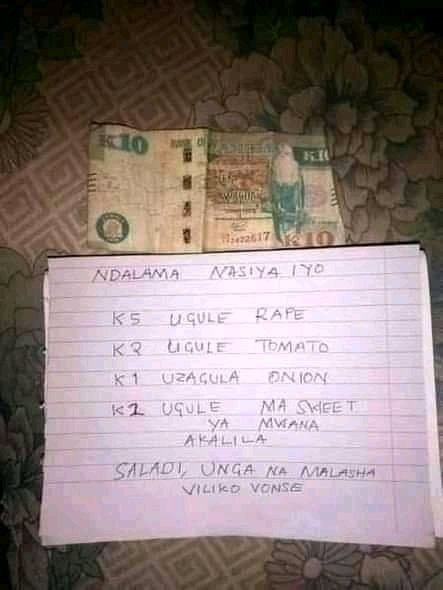 K10
BANK OF
K10
2422617
K10
NDALAMA NASIYA IYO
K5 UGULE RAPE
K2 UGULE TOMATO
K1 UZAGULA ONION
K2 UGULE MA SWEET
YA MWANA
AKALILA
SALADI, UNGA NA MALASHA
VILIKO VONSE